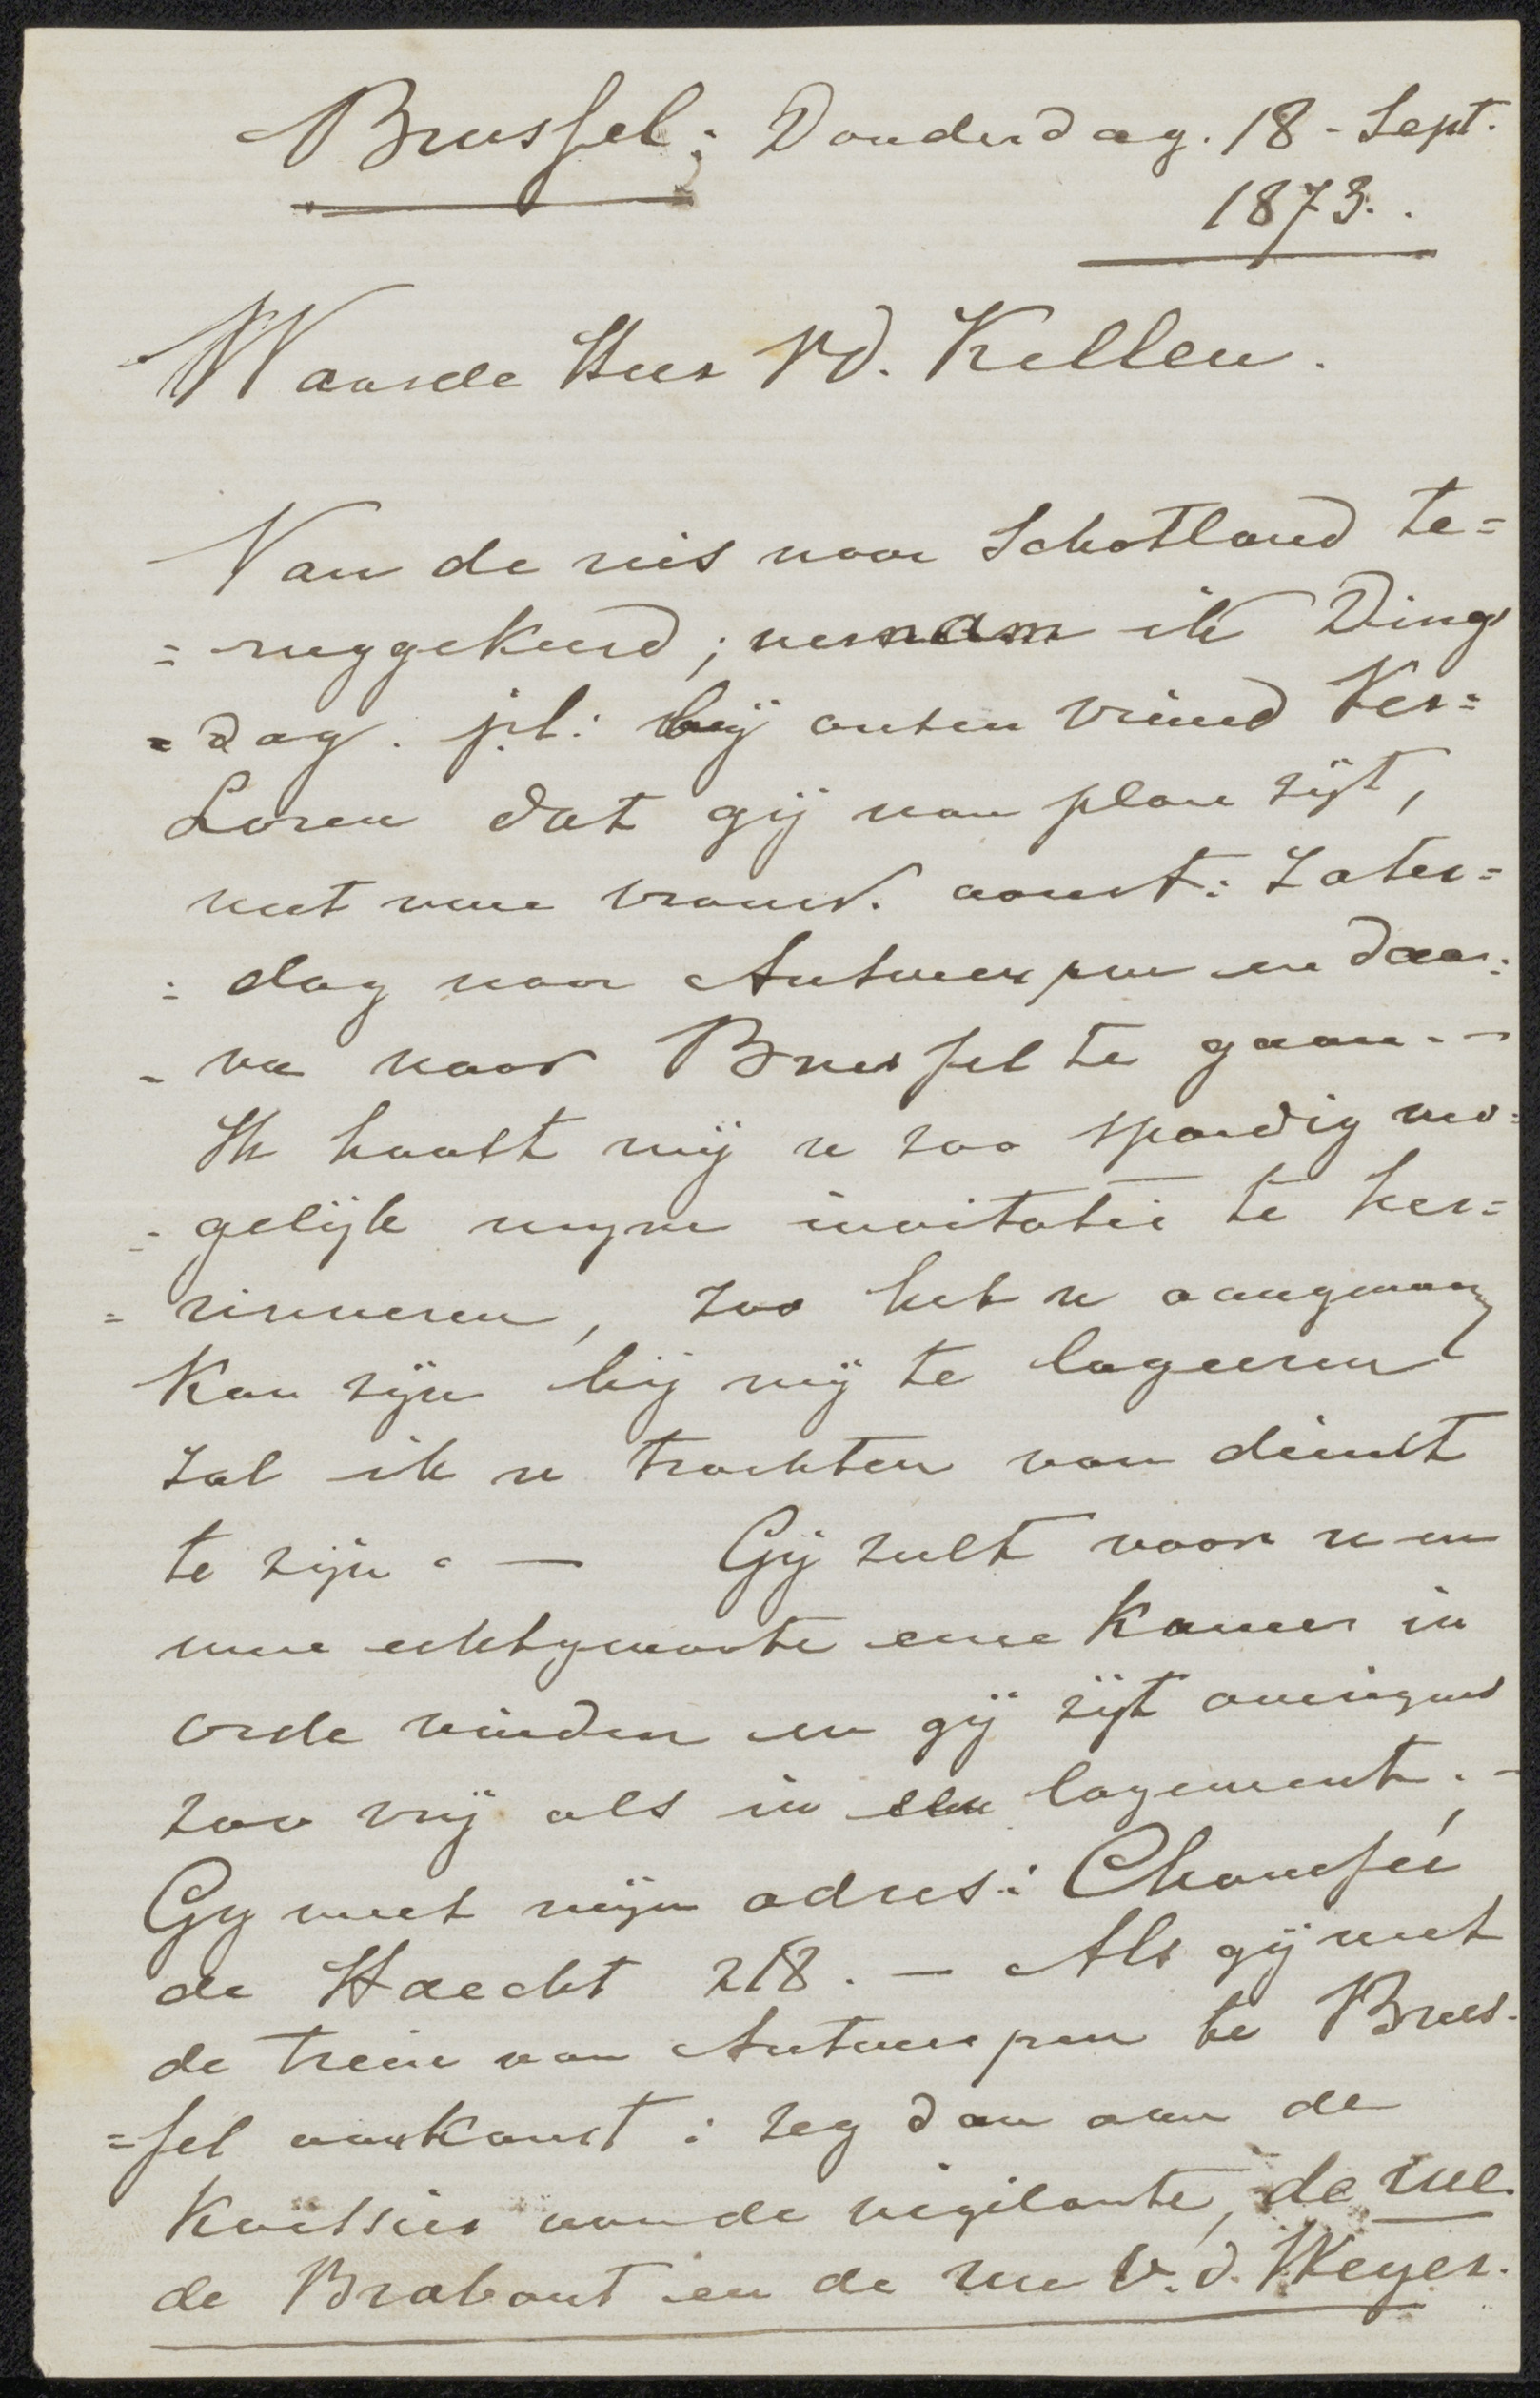 Brussel; Donderdag. 18 - Sept.
1873..
Waarde Heer Vd. Kellen.
Van de reis naar Schotland te=
=ruggekeerd; vernam ik Dings
=dag. j.l: bij onzen vriend Ver=
Loren dat gij van plan zijt,
met uwe vrouw. aanst: Zater=
=dag naar Antwerpen en daar=
-na naar Brussel te gaan. -
Ik haast mij u zoo spoedig mo=
=gelijk myne invitatie te her=
=rinneren, zoo het u aangenaam
kan zijn bij mij te logeeren
zal ik u trachten van dienst
te zijn. — Gij zult voor u en
uwe echtgenoote eene kamer in
orde vinden en gij zijt overigens
zoo vrij als in een logement. -
Gy weet mijn adres: Chaussée
de Haecht 218. — Als gij met
de trein van Antwerpen te Brus-
=sel aankomt: zeg dan aan de
koetsier van de vigilante, de rue
de Brabant en de rue V. d. Weyer.